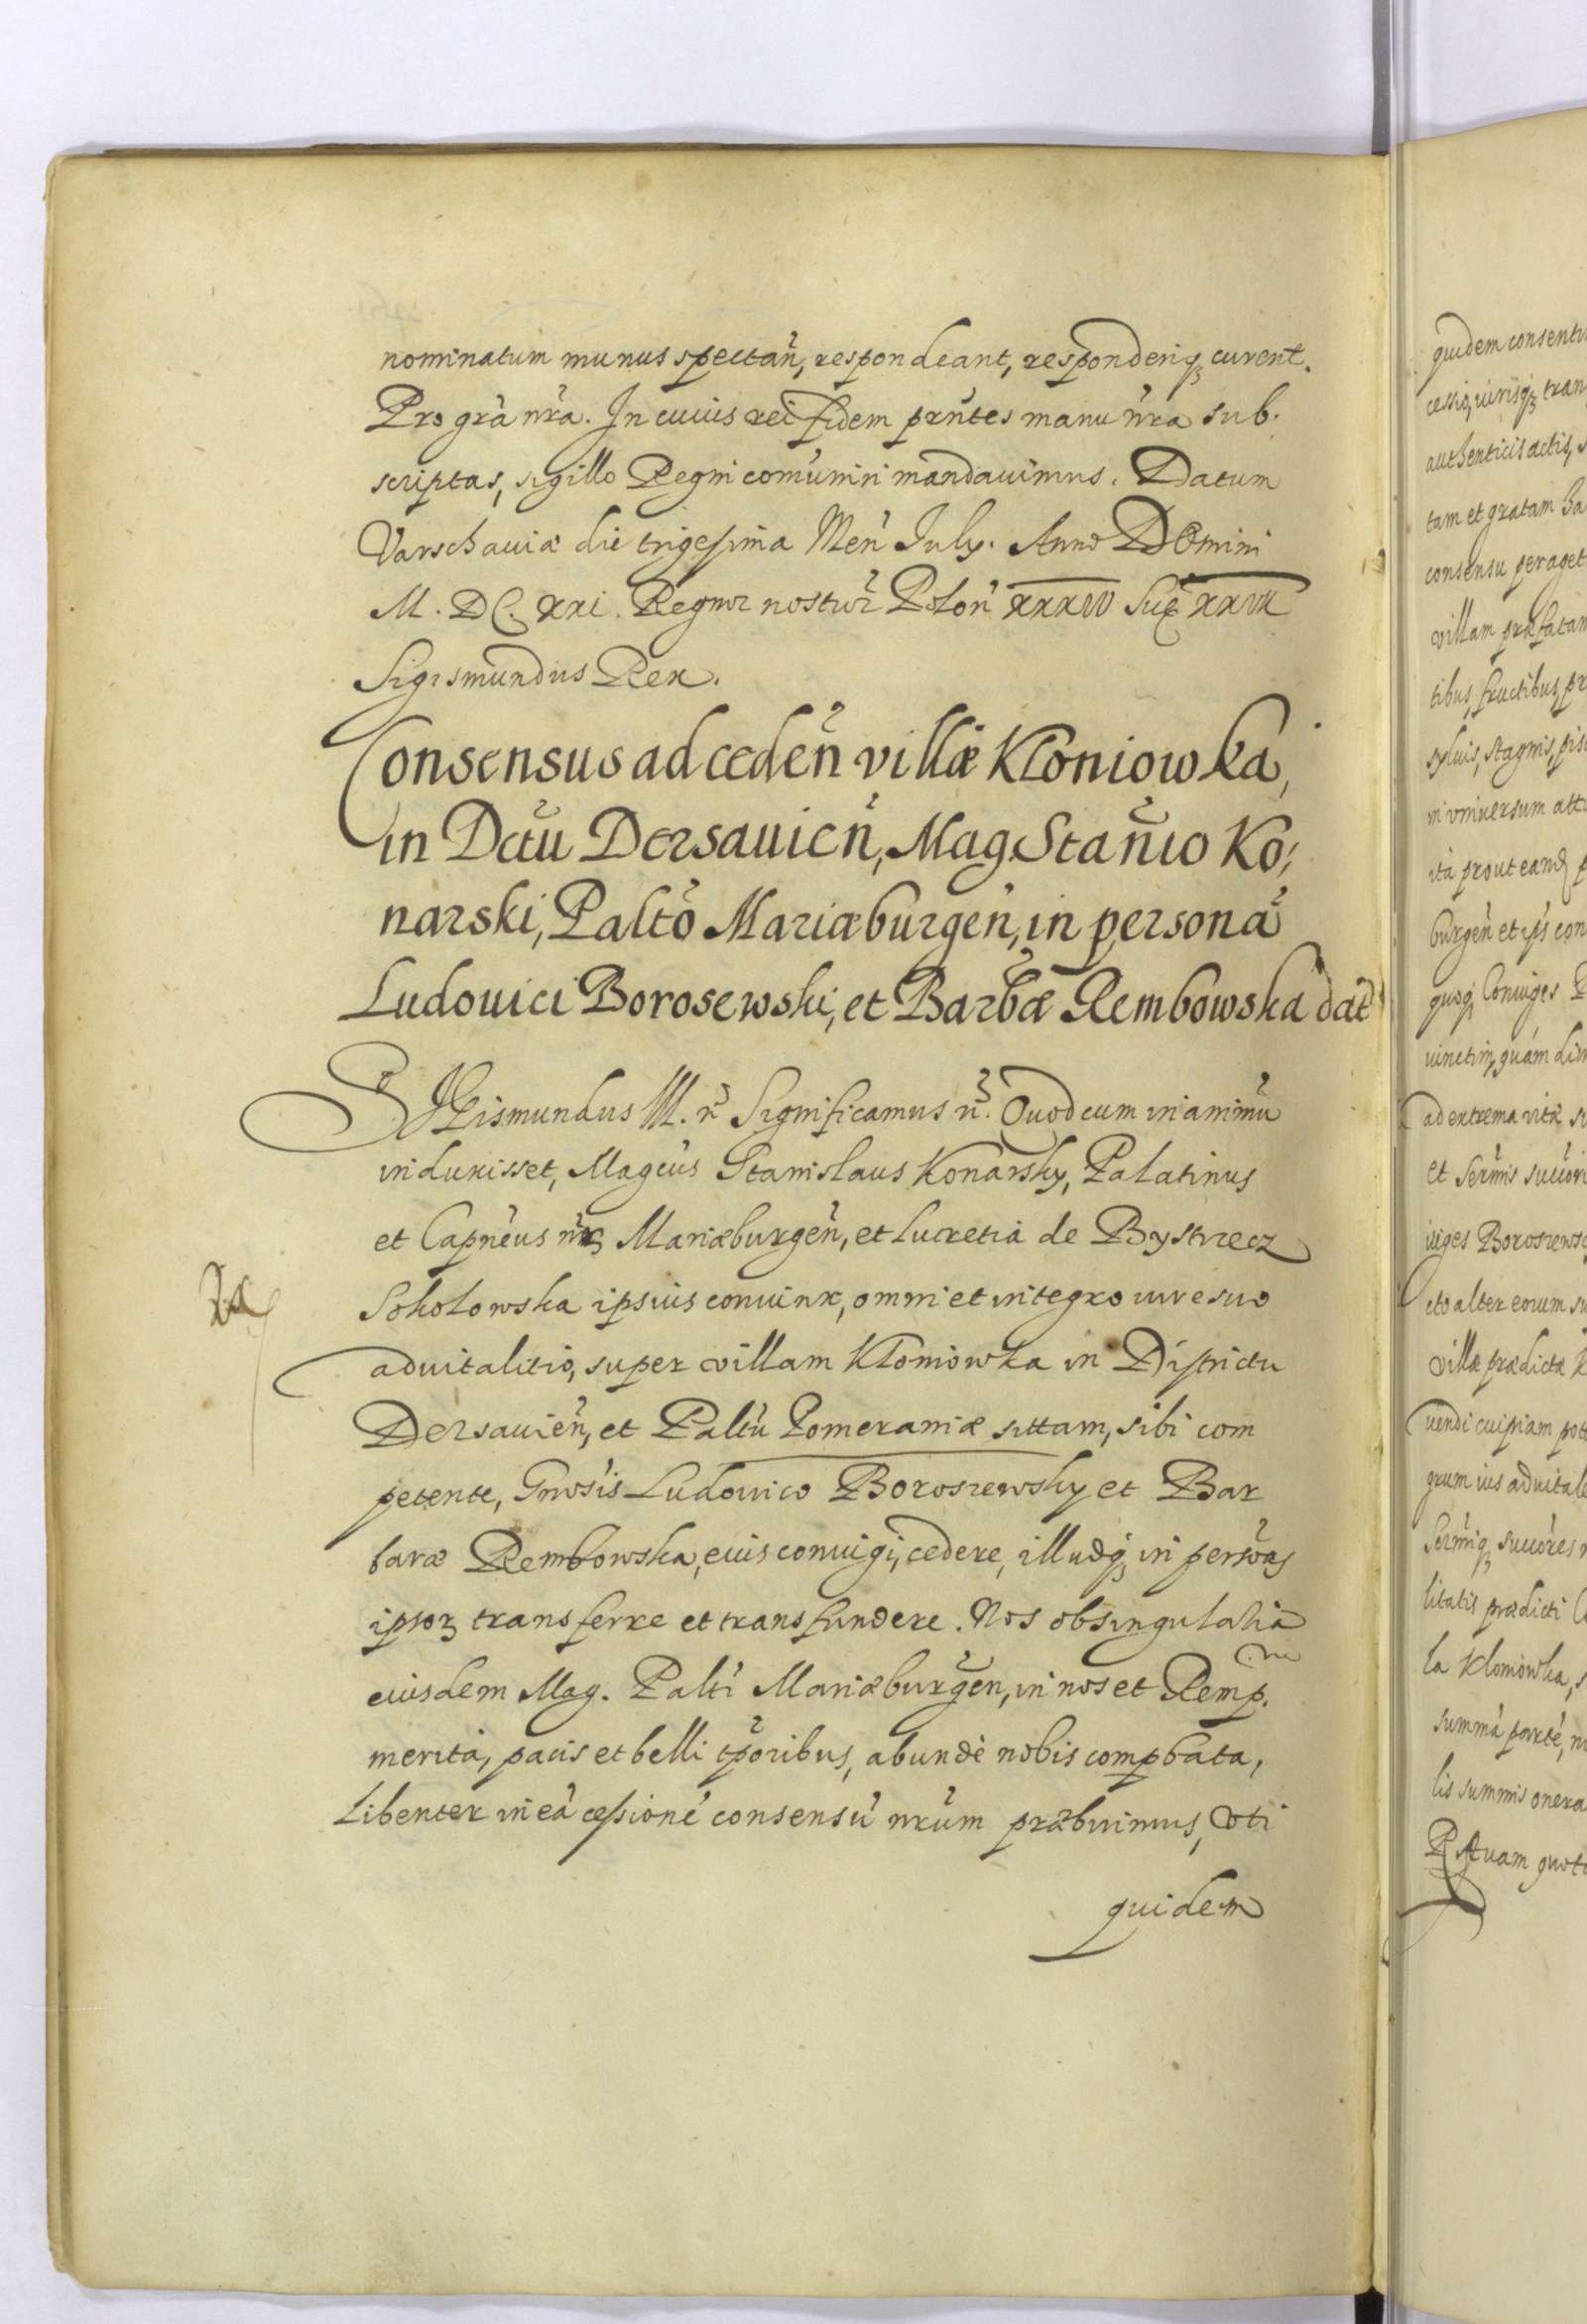 nominatum munus spectan̄, respondeant, responderiq₃ curent.
Pro gr̄a nr̄a. In cuius rei fidem prn̄tes manu nr̄a sub.
scriptas, sigillo Regni com̄uniri mandauimus. Datum
Varschauiæ die trigesima Men̄ July. Anno Domini
M. DC. XXI. Regnor̄ nostror̄ Polon̄
Sigismundus Rex.
Consensus ad ceden̄ villæ Kłoniowka,
in Dctū Dersauien̄, Mag. Stan̄io Ko,
narski, Palt̄o Mariæburgen̄, in personā
Ludouici Borosewski, et Barb̄æ Rembowska dat̄
SIGismundus III. r̄ Significamus n̄. Quod cum in animū
induxisset, Magc̄us Stanislaus Konarsky, Palatinus
et Capnēus nr̄ Mariæburgen̄, et Lucretia de Bystrzecz
Sokołowska ipsius coniunx, omni et integro iure suo
aduitalitio, super villam Kłoniowka in Districtu
Dersauien̄, et Palt̄u Pomeraniæ sittam, sibi com
petente, Gnrōsis Ludouico Boroszewsky et Bar
baræ Rembowska, eius coniugi, cedere, illudq₃ in persōas
ipsoꝝ transferre et transfundere. Nos ob singularia
eiusdem Mag. Palt̄i Mariæburgen̄, in nos et Remp.
merita, pacis et belli tp̄oribus, abundè nobis comꝓbata,
Libenter in eā cessionē consensū nrūm præbuimus, Vti
quidem
quidem consentim
cessio, iurisq₃ tran
authenticis actis,
tam et gratam ha
consensu peraget
villam præfatam
tibus, fructibus, pr
syluis, stagnis, pis
in vniuersum att
ita prout eand p
burgen̄ et ips̄ con
quoq₃ Coniuges
ad extrema vitæ
et Serm̄is succōri
iuges Boroszewsc
eto alter eorum su
villæ prædictæ K
uendi cuipiam pot
grum ius aduitale
Serm̄iq₃ succōres n
litatis prædicti
la Kłoniowka, s
summā partē, n
lis summis onera